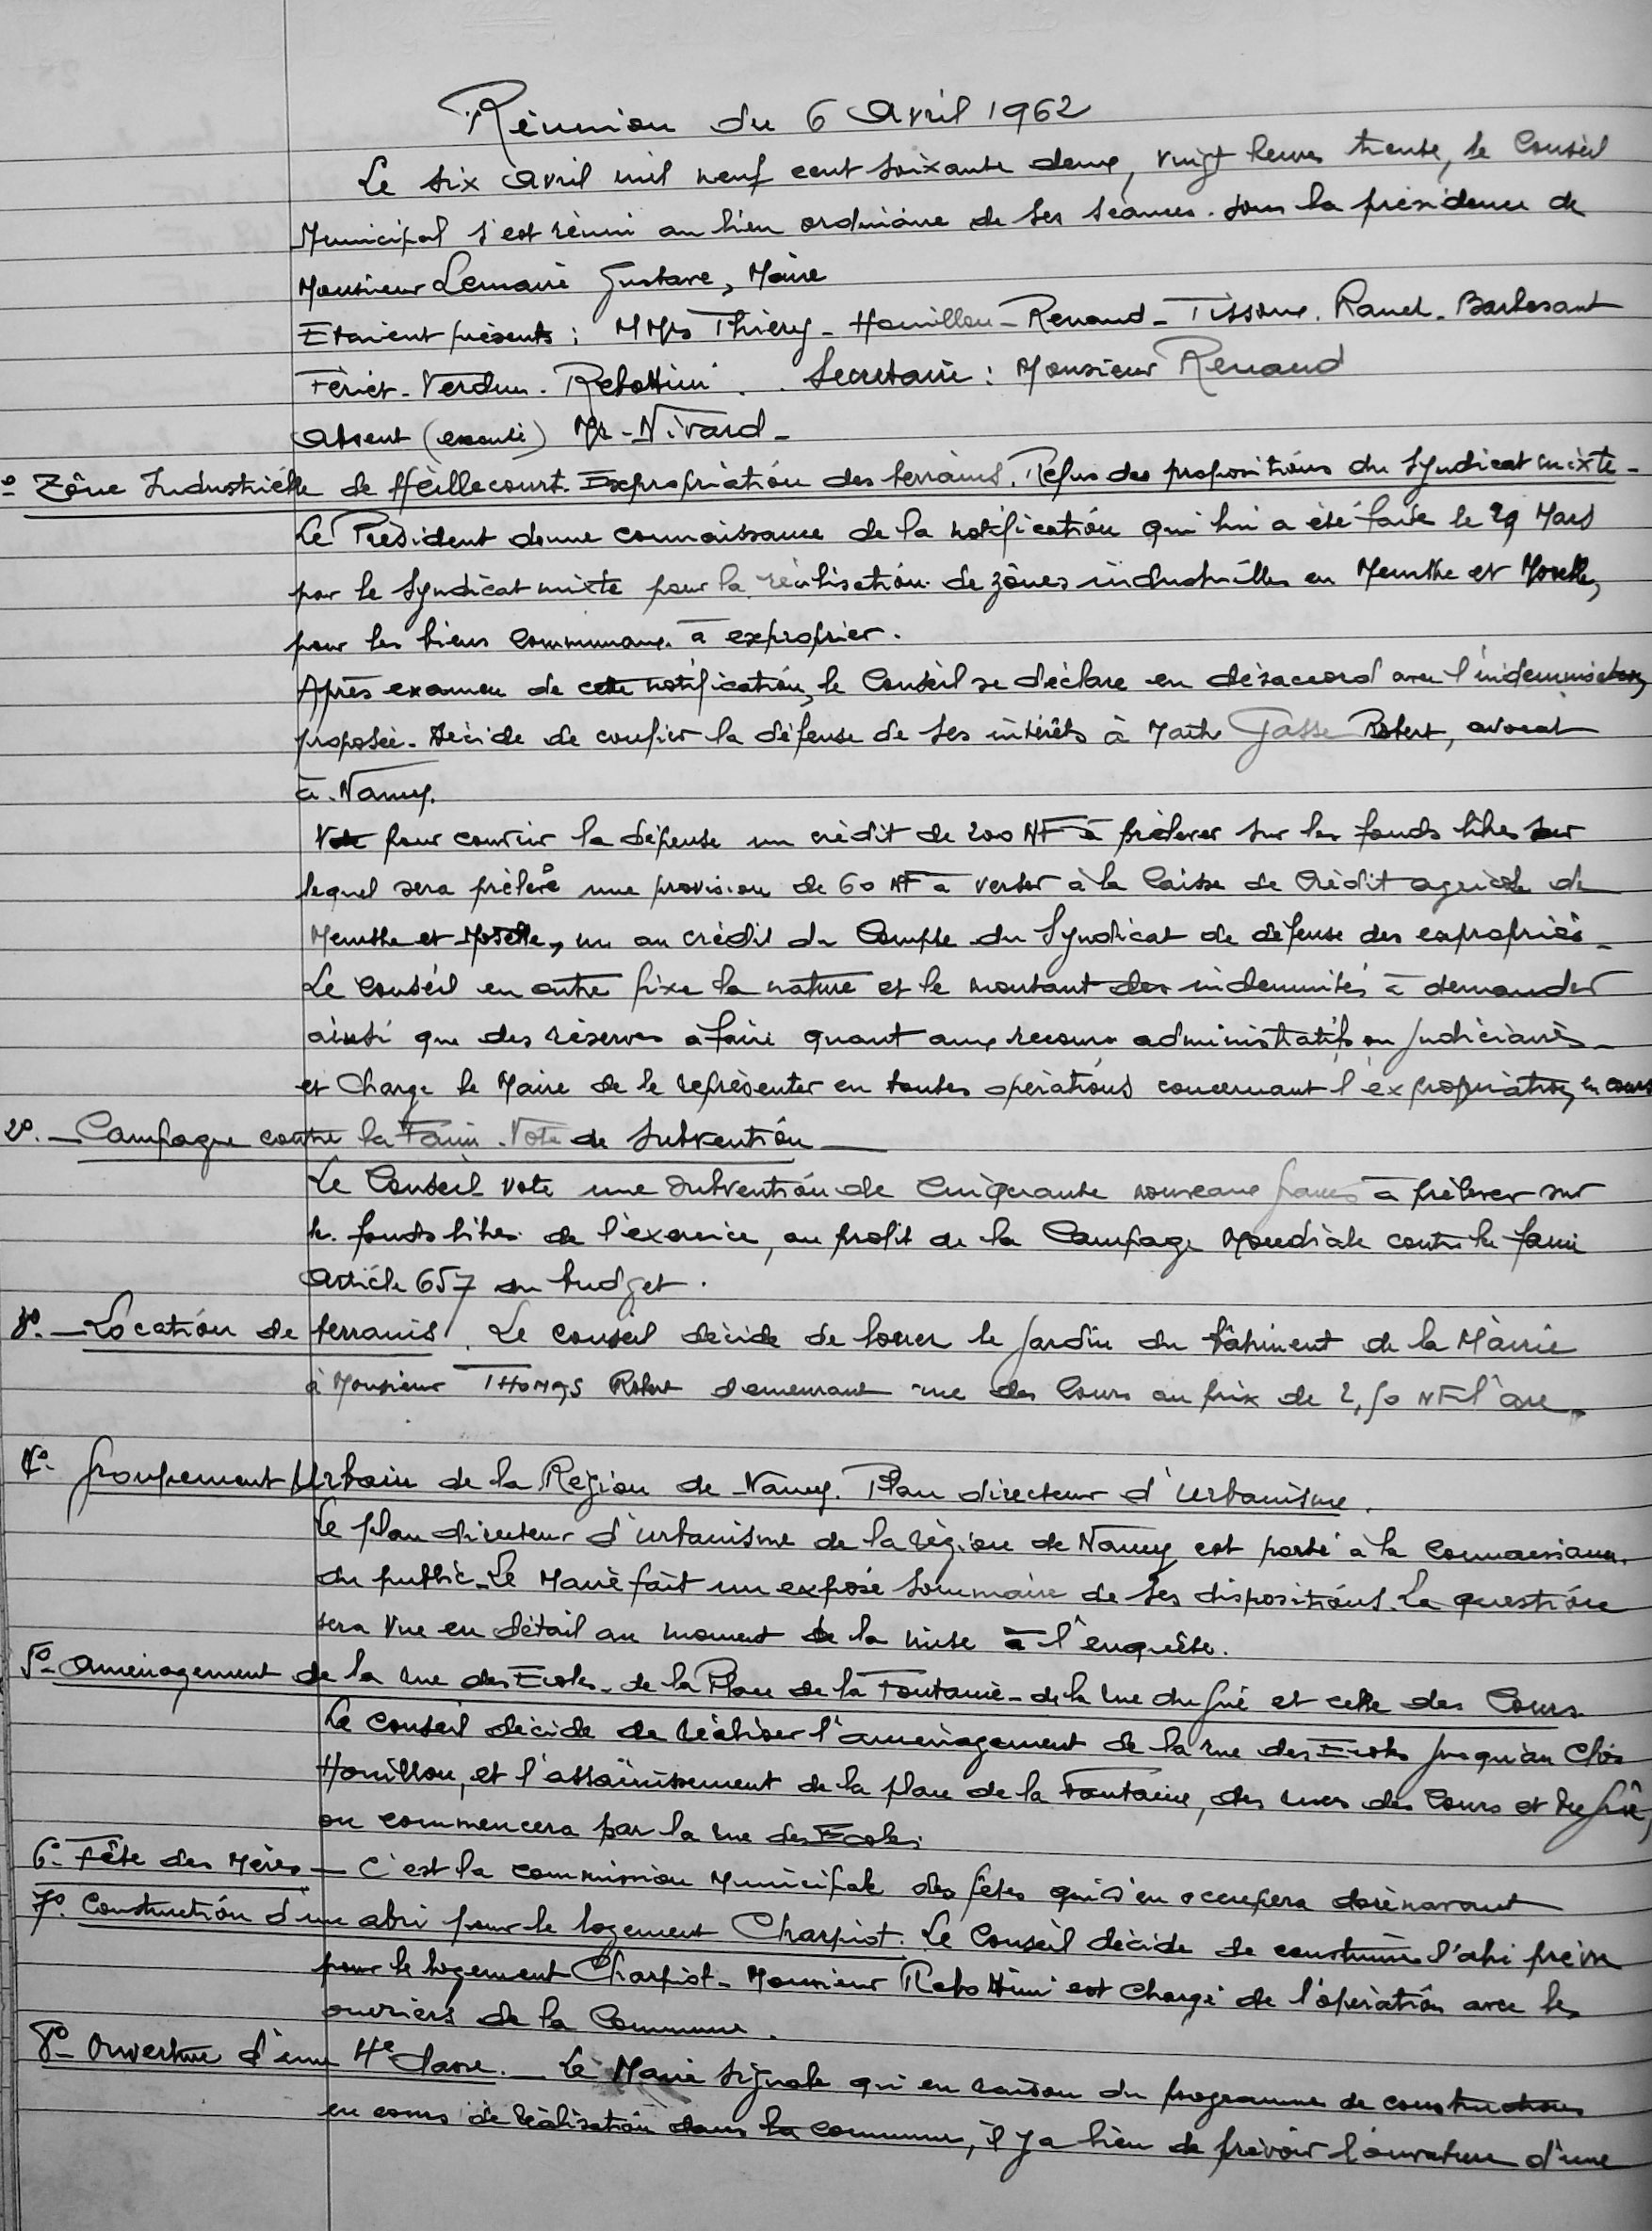 Réunion du 6 Avril 1962
Le six Avril mil neuf cent soixante deux, vingt heures trente, le Conseil
Municipal s'est réuni au lieu ordinaire de ses séances. sous la présidence de
Monsieur Lemaire Gustave, Maire
Etaient présents : MMrs Thiery - Houillon - Renaud - Tissoux. Ranch. Barbosant
Fériet - Verdun - Rebottini . . Secrétaire : Monsieur Renaud
Absent (excusé) Mr - Nivard -
Zône Industrielle de Heillecourt. Expropriation des terrains. Refus des propositions du Syndicat mixte -
Le Président donne connaissance de la notification qui lui a été faite le 29 Mars
par le Syndicat mixte pour la réalisation de zônes industrielles en Meurthe et Moselle,
pour les biens communaux à exproprier.
Après examen de cette notification, le Conseil se déclare en désaccord avec l'indemnisation
proposée. Décide de confier la défense de ses intérêts à Maître Gasse Robert, avocat
à Nancy.
Vote pour couvrir la dépense un crédit de 200 NF à prélever sur les fonds libres sur
lequel sera prélevé une provision de 60 NF à verser à la Caisse de Crédit agricole de
Meurthe et Moselle, au crédit du Compte du Syndicat de défense des expropriés -
Le Conseil en outre fixe la nature et le montant des indemnités à demander
ainsi que des réserves à faire quant aux recours administratifs ou judiciaires -
et Charge le Maire de le représenter en toutes opérations concernant l'expropriation en cours
2º. - Campagne contre la Faim. Vote de Subvention -
Le Conseil vote une subvention de Cinquante nouveaux francs à prélever sur
les fonds libres de l'exercice, au profit de la Campagne Mondiale contre la faim
Article 657 du budget.
3º. - Location de terrains. Le Conseil décide de louer le jardin du bâtiment de la Mairie
à Monsieur THOMAS Robert demeurant rue des Cours au prix de 2,50 NF l'are.
4º- Groupement Urbain de la Région de Nancy. Plan directeur d'Urbanisme.
Le plan directeur d'urbanisme de la région de Nancy est porté à la connaissance
du public. Le Maire fait un exposé sommaire de ses dispositions. La question
sera vue en détail au moment de la mise à l'enquête.
5º- Aménagement de la rue des Ecoles - de la Place de la Fontaine - de la rue du Gué et celle des Cours.
Le Conseil décide de réaliser l'aménagement de la rue des Ecoles jusqu'au Clos
Houillon, et l'assainissement de la place de la Fontaine, des rues des Cours et du Gué,
on commencera par la rue des Ecoles.
6º- Fête des Mères - C'est la commission Municipale des fêtes qui s'en occupera dorénavant
7º. Construction d'un abri pour le logement Charpiot. Le Conseil décide de construire l'abri prévu
pour le logement Charpiot - Monsieur Rebottini est chargé de l'opération avec les
ouvriers de la Commune.
8º- Ouverture d'une 4e Classe. - Le Maire signale qu'en raison du programme de constructions
en cours de réalisation dans la commune, il y a lieu de prévoir l'ouverture d'une